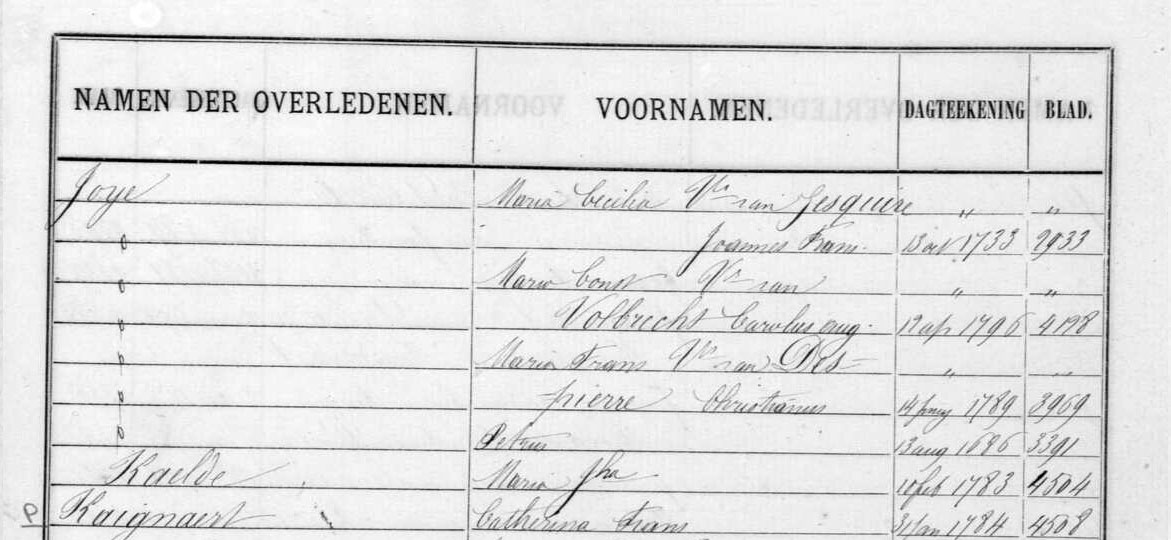 NAMEN DER OVERLEDENEN. VOORNAMEN. DAGTEEKENING BLAD.
Joye Maria Cecilia Ve van Jesquire " "
Joannes Frans. 13 oct 1733 2933
Maria Const Ve van " "
Volbrecht Carolus aug. 12 ap 1796 4198
Maria Frans Ve van Des- " "
pierre Christianus 14 1789 3969
Petrus 13 aug 1686 3391
Kaelde Maria Jha 10 feb 1783 4504
Kaignaert Catherina Frans 31 jan 1784 4508